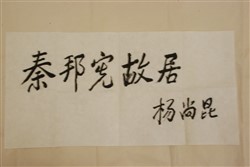 秦邦宪故居
杨尚昆